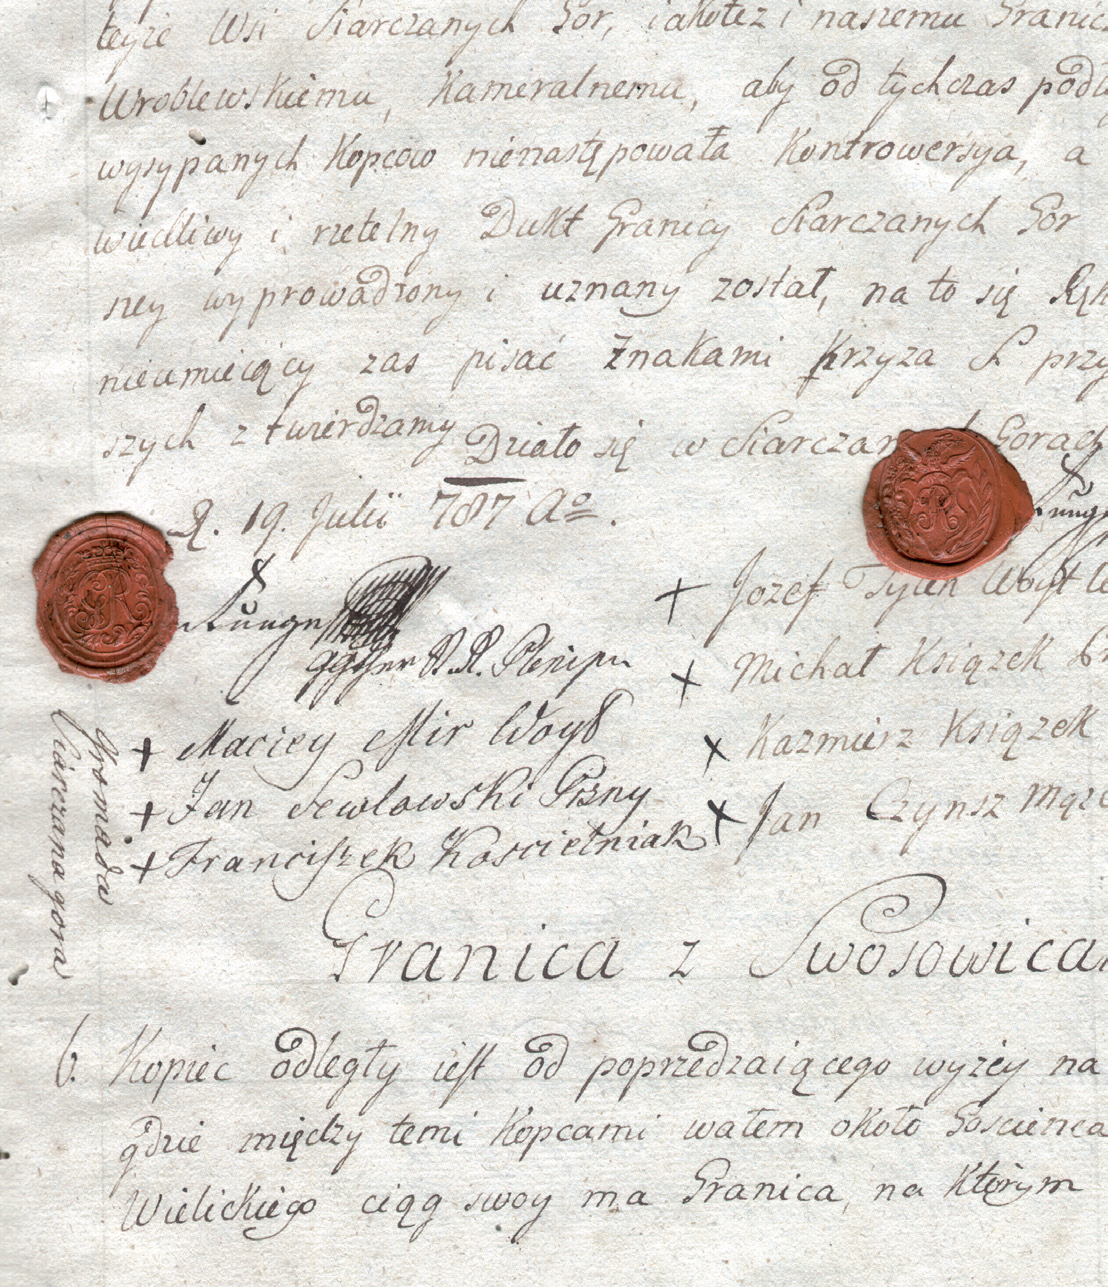 teyże Wsi Siarczanych Gor, iakotez i naszemu Granic
Wroblewskiemu, Kameralnemu, aby od tychczas podł
wysypanych Kopcow nienastępowała Kontrowersya, a
wiedliwy i rzetelny Dukt Granicy Siarczanych Gor
ney wyprowadzony i uznany został, na to się Ręk
nieumieiący zas pisać Znakami Krzyza przy
szych ztwierdzamy Działo się w Siarczan Gorach
D. 19. Julii 787 Ao.
+ Jozef Tylek Woyt
+ Michał Ksiązek
+ Maciey Mir Woyt
+ Kazmierz Ksiązek
+ Jan Przny
+ Jan Czynsz
+ Franciszek Koscielniak
Gromada
Siarczana gora
Granica z Swosowica
6. Kopiec odległy iest od poprzedzaiącego wyżey na
gdzie między temi Kopcami wałem około Goscienca
Wielickiego ciąg swoy ma Granica, na którym